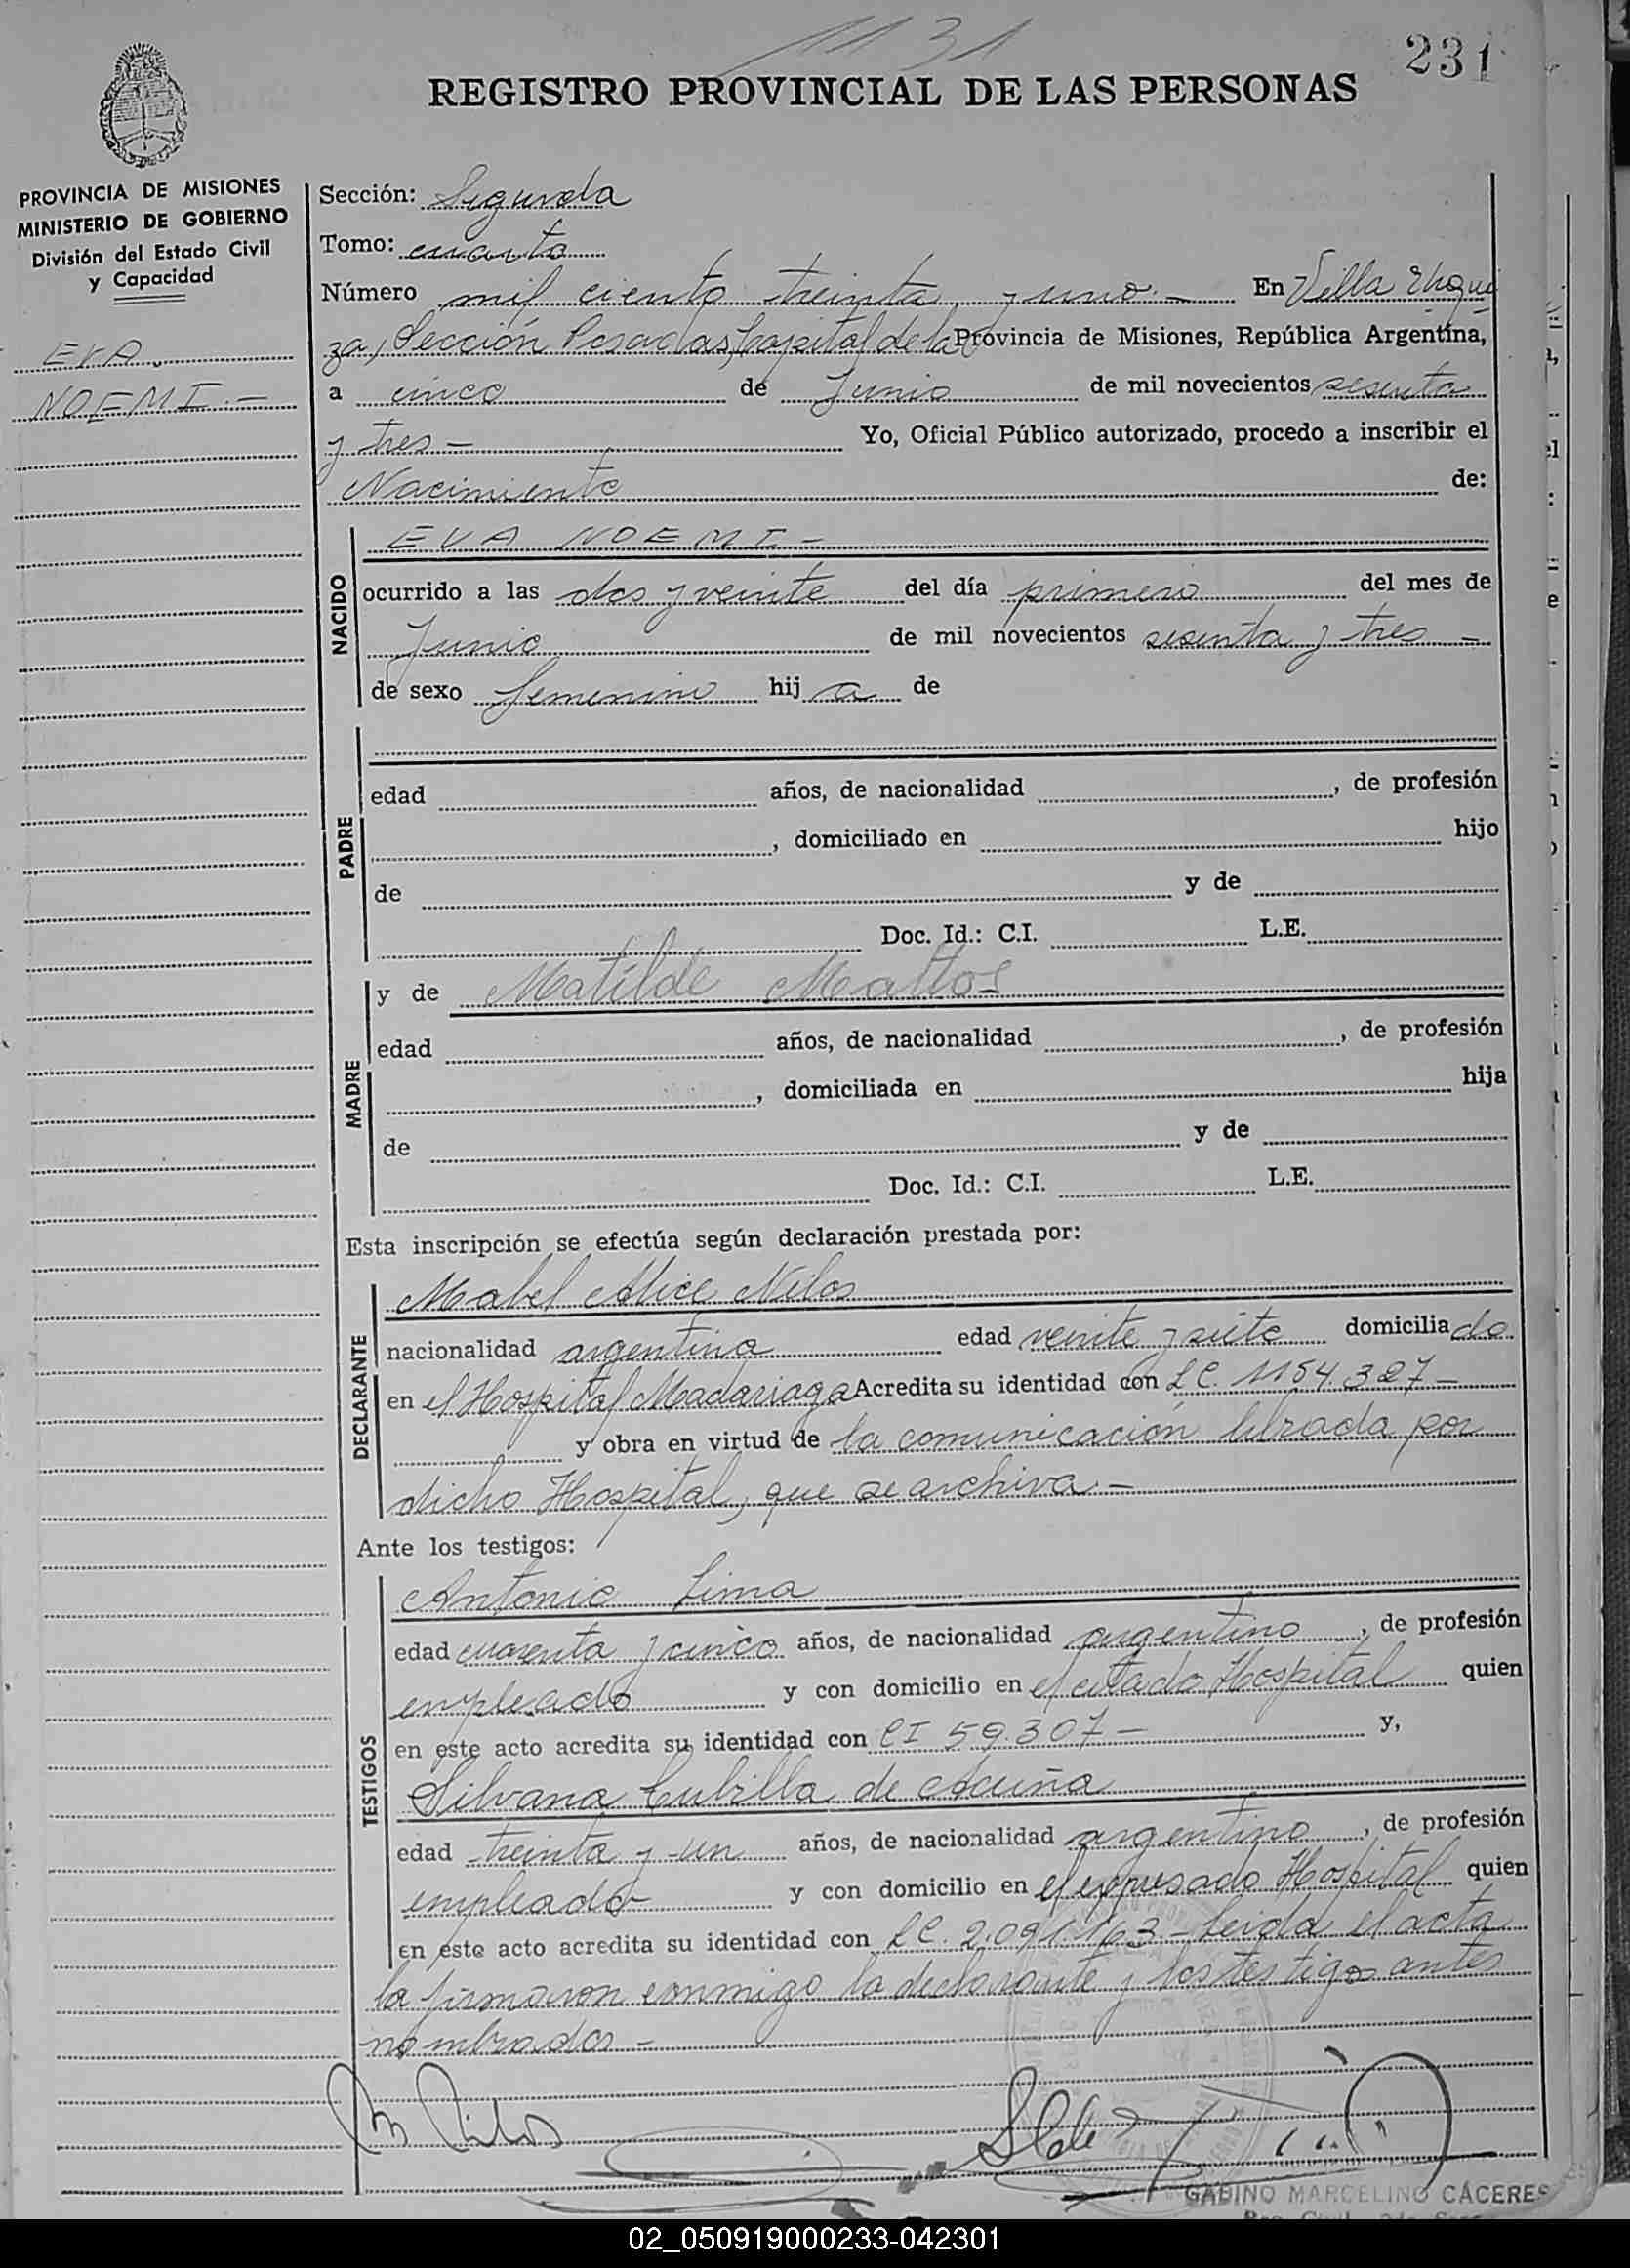 1131
231
REGISTRO PROVINCIAL DE LAS PERSONAS
PROVINCIA DE MISIONES
MINISTERIO DE GOBIERNO
División del Estado Civil
y Capacidad
EVA
NOEMI.-
Sección: Segunda
Tomo: cuarto
Número mil ciento treinta y uno.- En Villa Urqui
za, Sección Posadas, Capital de la Provincia de Misiones, República Argentina,
a cinco de Junio de mil novecientos sesenta
y tres - Yo, Oficial Público autorizado, procedo a inscribir el
Nacimiento de:
NACIDO
EVA NOEMI -
ocurrido a las dos y veinte del día primero del mes de
Junio de mil novecientos sesenta y tres -
de sexo femenino hij a de
PADRE
edad años, de nacionalidad , de profesión
, domiciliado en hijo
de y de
Doc. Id.: C.I. L.E.
MADRE
y de Matilde Mattos
edad años, de nacionalidad , de profesión
, domiciliada en hija
de y de
Doc. Id.: C.I. L.E.
Esta inscripción se efectúa según declaración prestada por:
DECLARANTE
Mabel Alice Nilos
nacionalidad argentina edad veinte y siete domicilia do
en el Hospital Madariaga Acredita su identidad con LC. 1154.327 -
y obra en virtud de la comunicación librada por
dicho Hospital, que se archiva.-
Ante los testigos:
TESTIGOS
Antonio Lima
edad cuarenta y cinco años, de nacionalidad argentino , de profesión
empleado y con domicilio en el citado Hospital quien
en este acto acredita su identidad con CI 59.307 - y,
Silvana Cubilla de Acuña
edad treinta y un años, de nacionalidad argentino , de profesión
empleado y con domicilio en el expresado Hospital quien
en este acto acredita su identidad con LC. 2.091.163 - Leida el acta
la firmaron conmigo la declarante y los testigos antes
nombrados -
M Nilos
GABINO MARCELINO CÁCERES
02_050919000233-042301